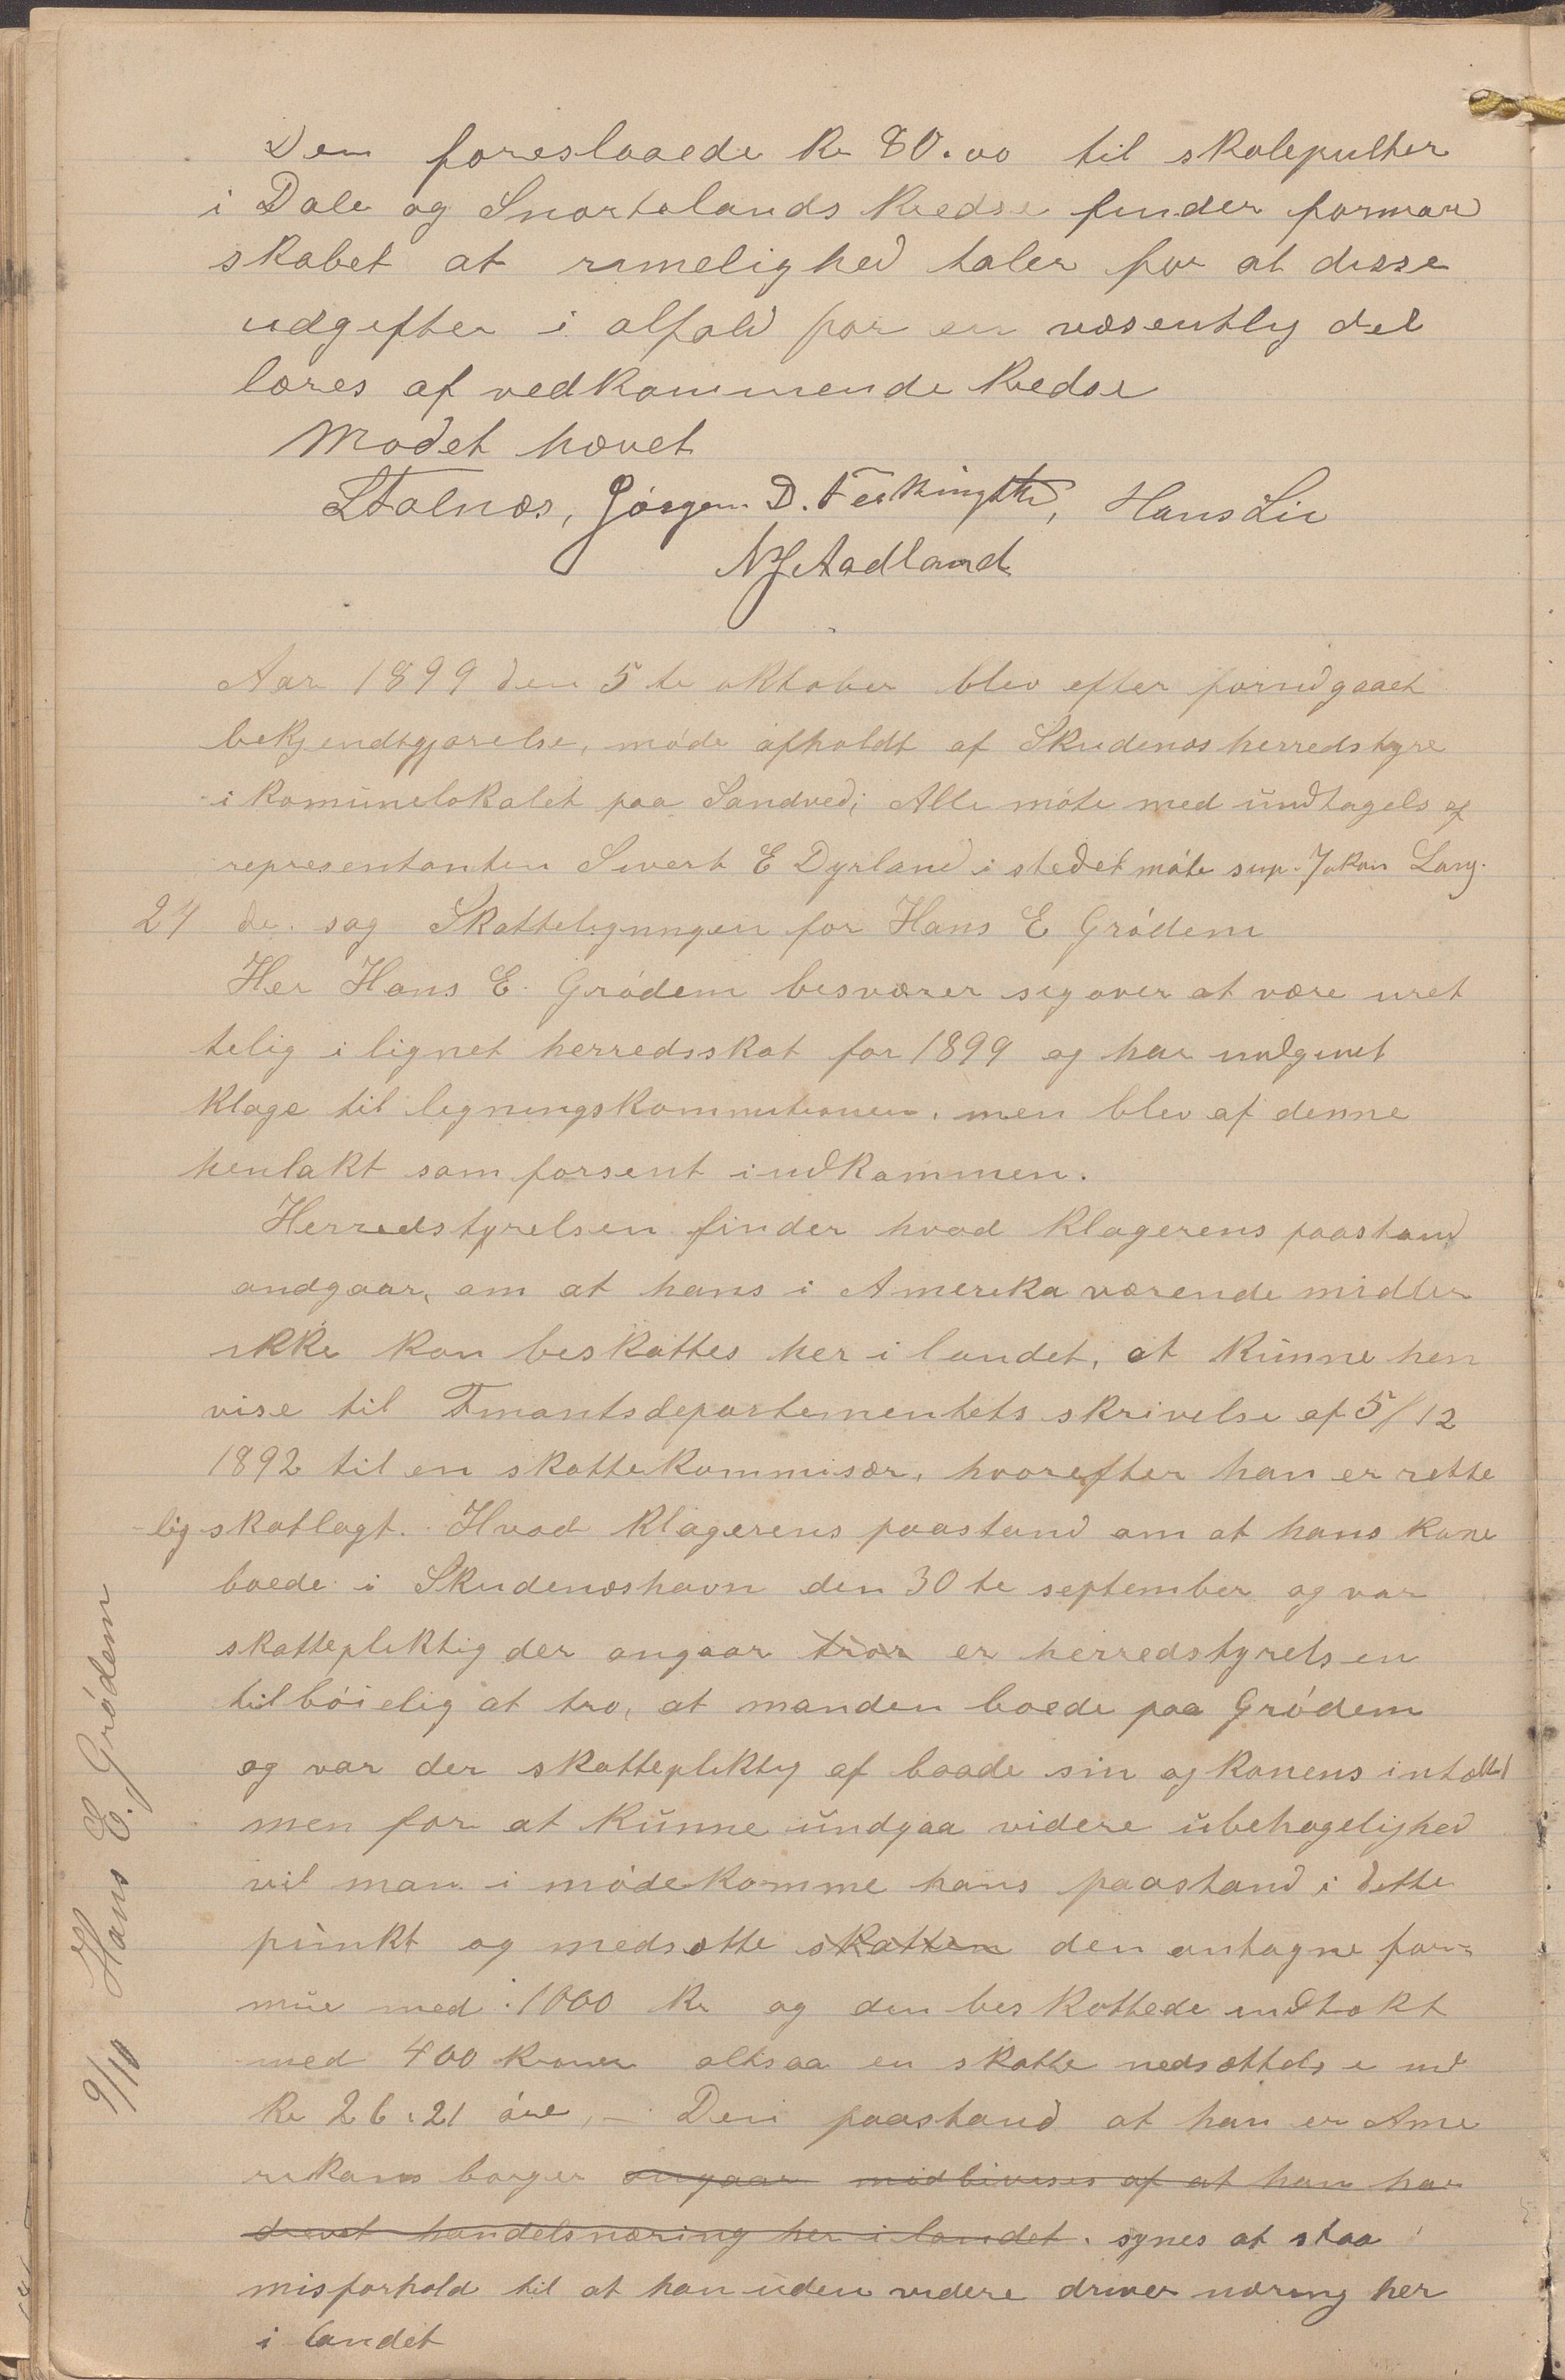 Den foreslaaede Kr 80.00 til skolepulter
i Dale og Snortelands Kredse finder forman
skabet at rimelighed taler for at disse
udgifter i alfald for en væsentlig del
bæres af vedkommende Kredse
Mødet hævet
Stalnæs, Jørgen D. Hans Lie
Aadland
Aar 1899 den 5te oktober blev efter forudgaaet
bekjendtgjørelse, møde afholdt af Skudenæs herredstyre
i komunelokalet paa Sandved; Alle møte med undtagels af
representanten Sivert E Dyrland i stedet møte sup. Jakon Lang.
24 de. sag Skatteligningen for Hans E Grødem
Her Hans E. Grødem besværer sig over at være uret
telig i lignet herredsskat for 1899 og har indgivet
klage til ligningskommitionen, men blev af denne
henlakt som forsent indkommen.
Herredstyrelsen finder hvad klagerens paastand
andgaar, om at hans i Amerika værende midler
ikke kan beskattes her i landet, at kunne hen
vise til Finantsdepartementets skrivelse af 5/12
1892 til en skattekommisær, hvorefter han er rette
lig skatlagt. Hvad klagerens paastand om at hans kone
boede i Skudenæshavn den 30te september og var
skattepliktig der angaar tror er herredstyrelsen
tilbøielig at tro, at manden boede paa Grødem
og var der skattepliktig af baade sin og konens
men for at kunne undgaa videre ubehagelighed
vil man i møde komme hans paastand i dette
punkt og nedsætte skatten den antagne for-
mue med 1000 Kr og den beskattede indtækt
med 400 kroner altsaa en skatte nedsættelse med
Kr 26.21 øre, - Den paastand at han er Ame
rikans borger angaar modbivises af at han har
drevet handelsnæring her i landet. synes at staa i
misforhold til at han uden videre driver næring her
i landet
9/10 Hans E. Grødem